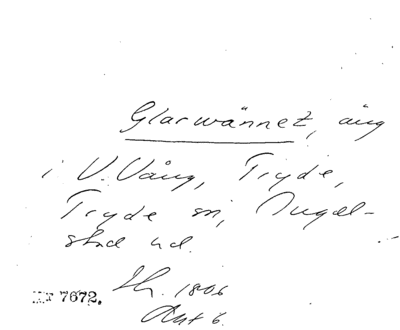 Glarwännet, äng
i V. Vång, Tryde,
Tryde sn, Ingel-
stad hd.
Sk. 1806
Akt 6.
7672.